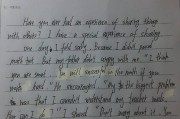 Have you ever had an experience of sharing things
with others? I have a special experience of sharing
one day, I felt sad, because I didn't
math test. But my father didn't angry with me. "I think
you are smart. You will the math if you
work hard" He encouraged my. "My the biggest problem
to learn that I couldn't understand my teacher
How can I do?" I shared "Don't worry about it. You